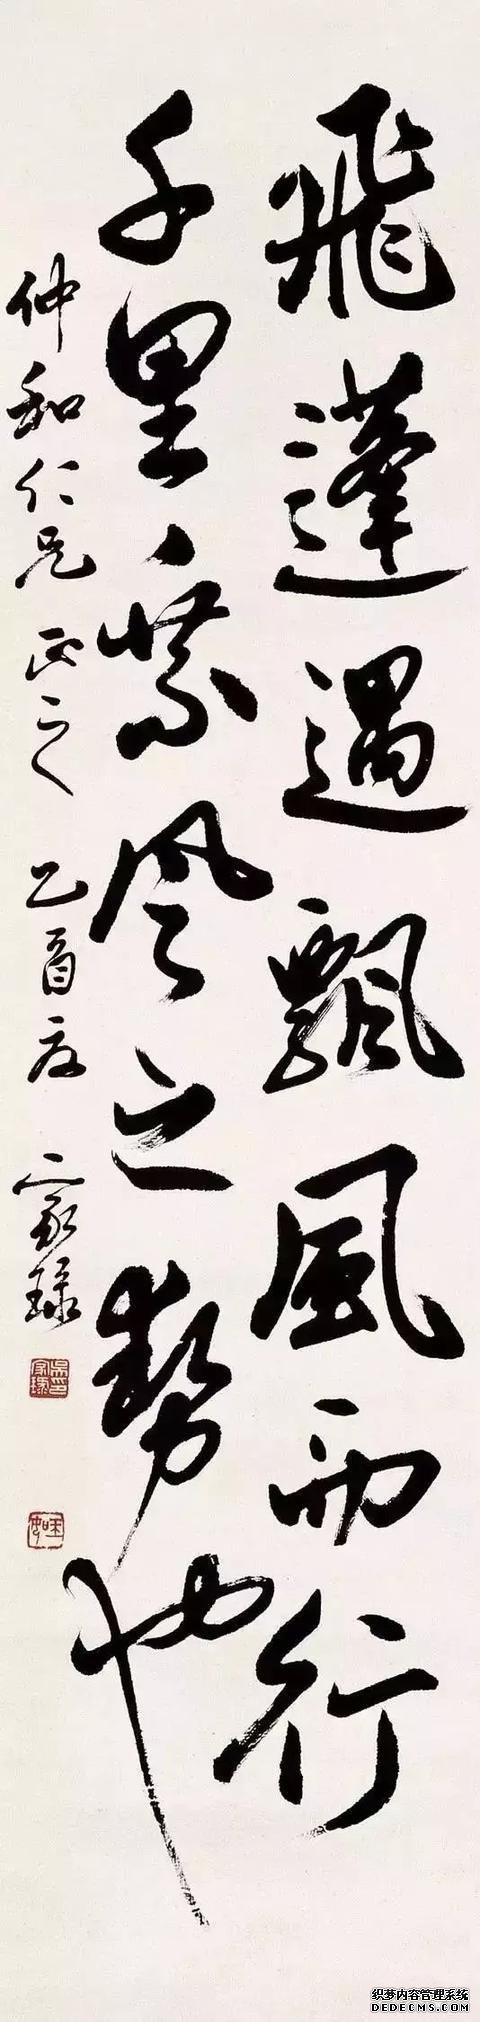 飛蓬遇飄風而行
千里乘風之勢也
仲和仁兄正之 乙酉夏 家琭
吳家琭印
织梦内容管理系统
DEDECMS.COM